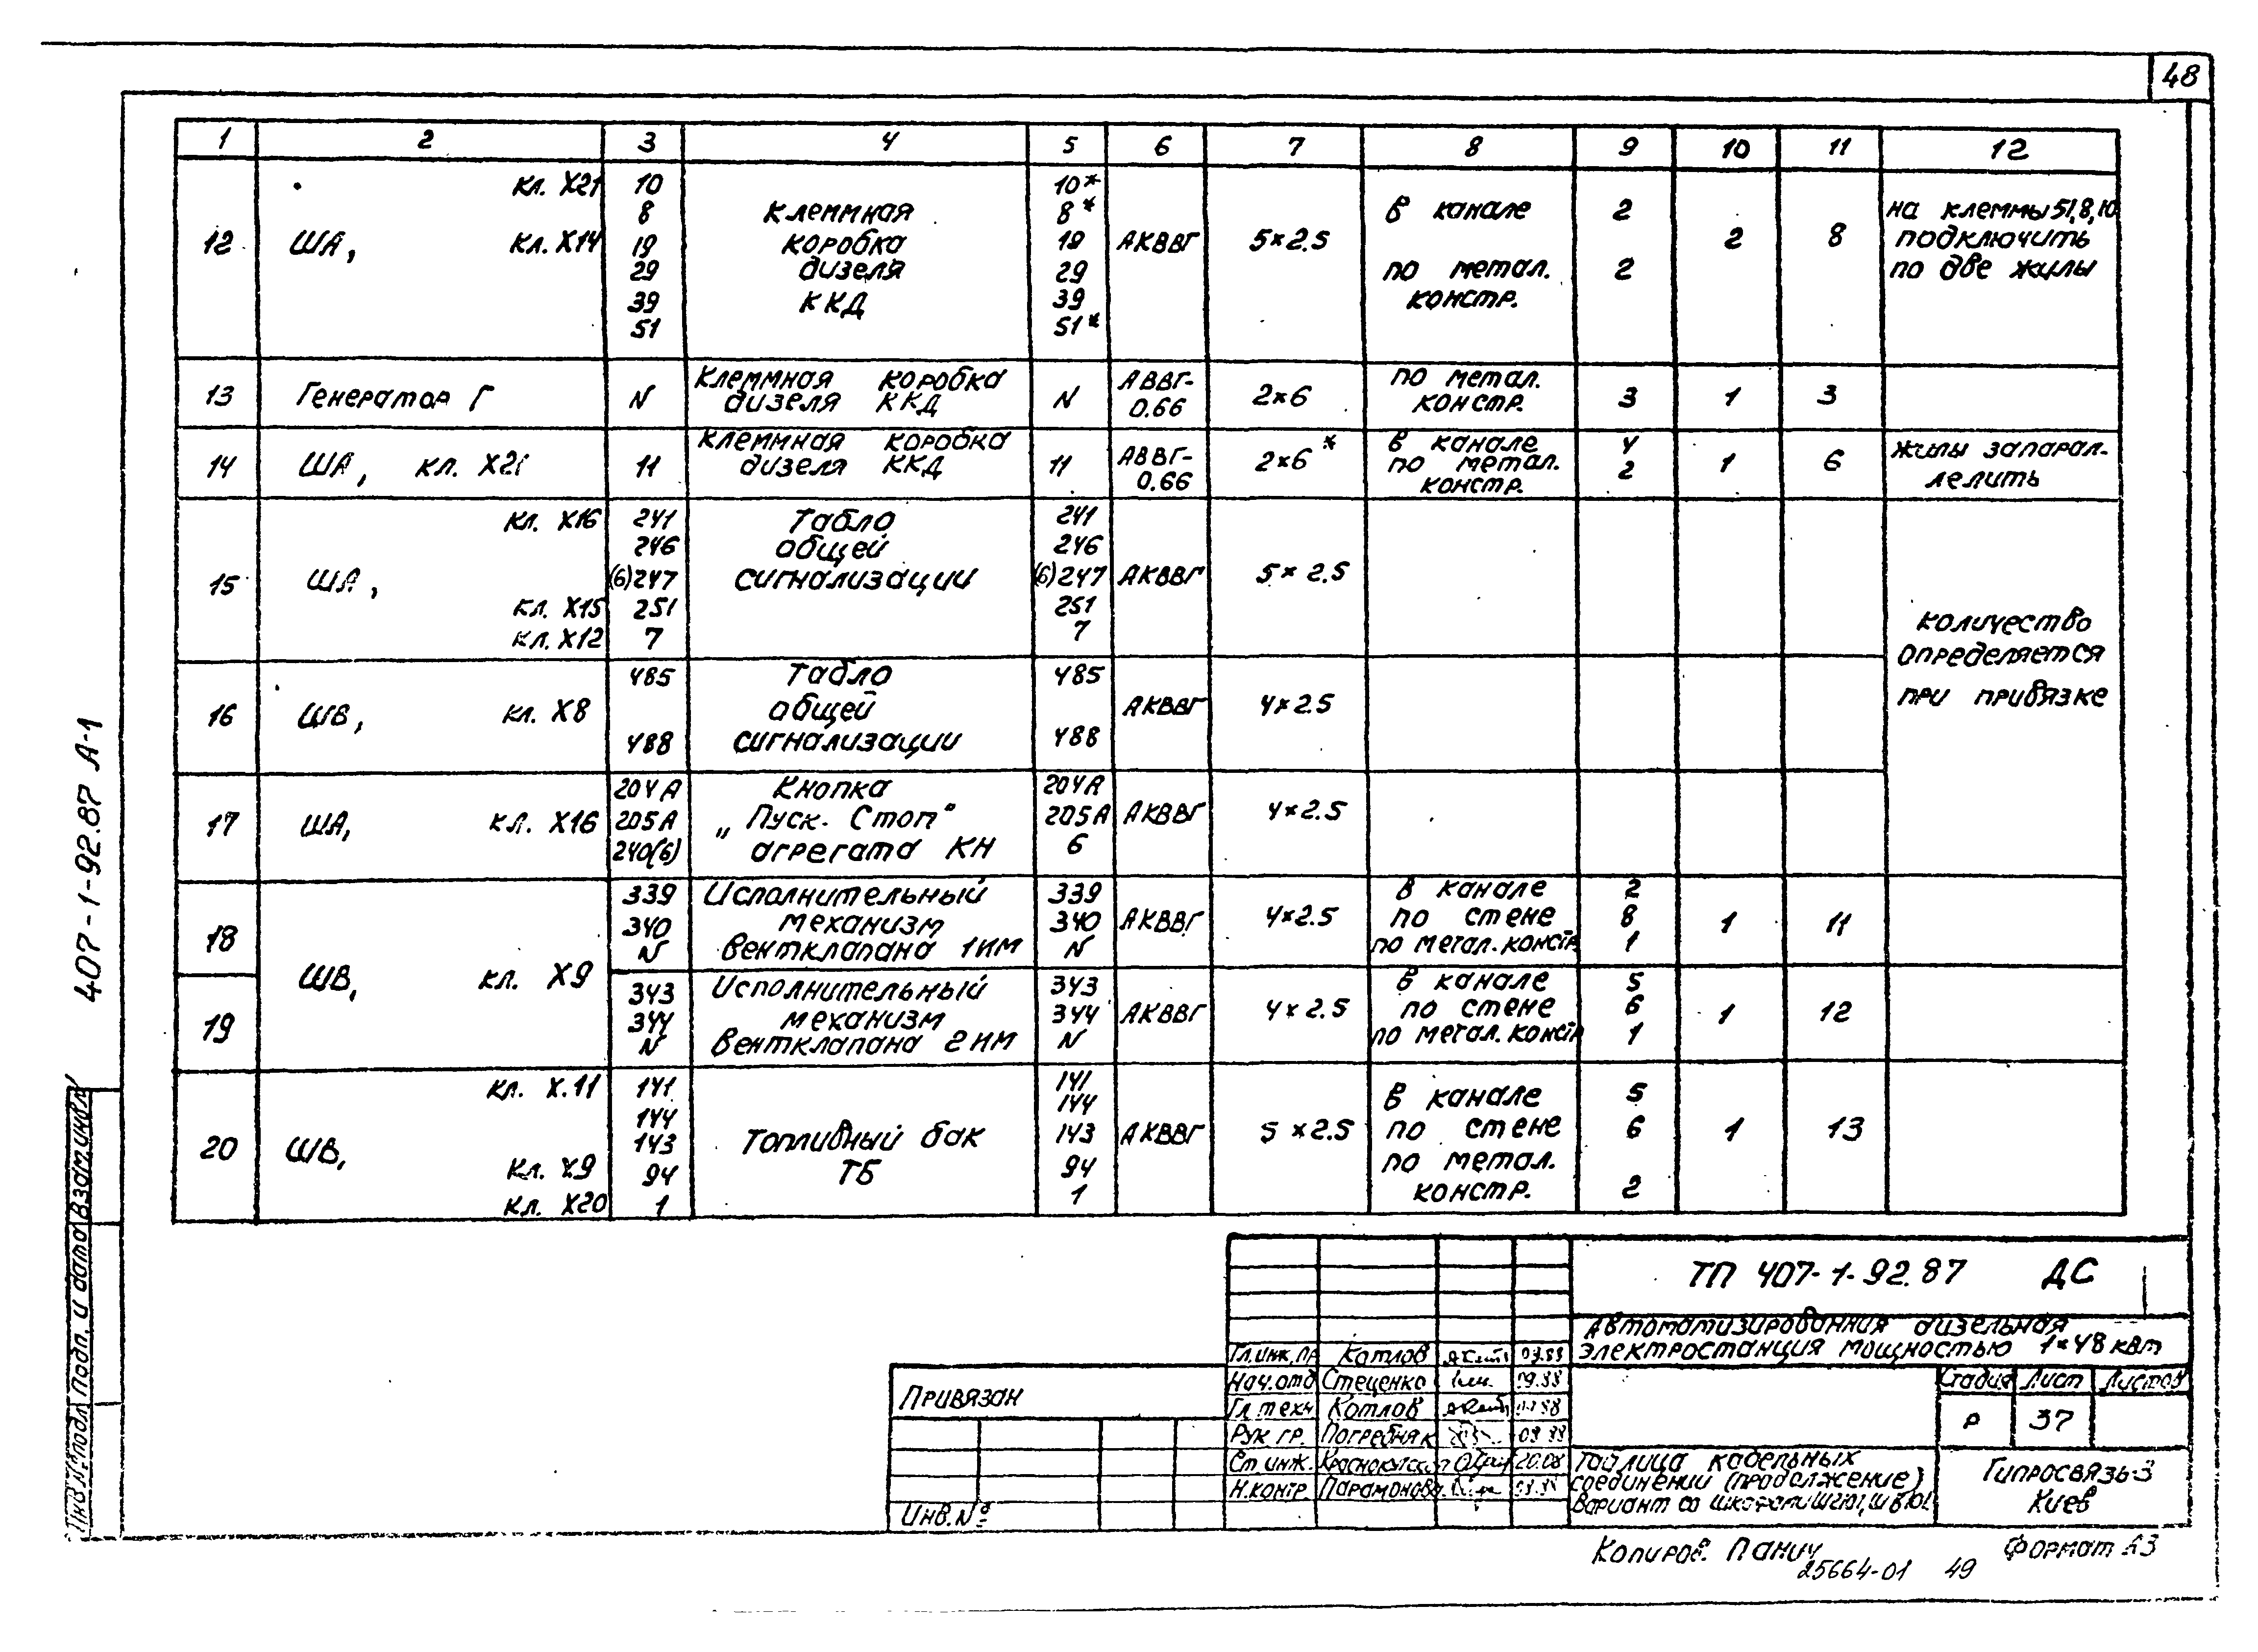 48
1 2 3 4 5 6 7 8 9 10 11 12
12 ША, кл. Х21 кл. Х14
10
8
19
29
39
51
Клеммная
коробка
дизеля
ККД
10*
8*
19
29
39
51*
АКВВГ 5×2.5
в канале 2
по метал. 2
констр.
2 8
на клеммы 51,8,10
подключить
по две жилы
13 Генератор Г N
Клеммная коробка
дизеля ККД
N
АВВГ-
0.66
2×6
по метал.
констр. 3
1 3
14 ША, кл. Х21 11
клеммная коробка
дизеля ККД
11
АВВГ-
0.66
2×6*
в канале 4
по метал. 2
констр.
1 6
жилы запарал-
лелить
15 ША,
кл. Х16 241
246
(6)247
кл. Х15 251
кл. Х12 7
Табло
общей
сигнализации
241
246
(6)247
251
7
АКВВГ 5×2.5
количество
определяется
при привязке
16 ШВ, кл. Х8
485
488
Табло
общей
сигнализации
485
488
АКВВГ 4×2.5
17 ША, кл. Х16
204А
205А
240(6)
Кнопка
„Пуск. Стоп"
агрегата КН
204А
205А
6
АКВВГ 4×2.5
18
ШВ, кл. Х9
339
340
N
Исполнительный
механизм
вентклапана 1ИМ
339
340
N
АКВВГ 4×2.5
в канале 2
по стене 8
по метал. констр. 1
1 11
19
343
344
N
Исполнительный
механизм
вентклапана 2ИМ
343
344
N
АКВВГ 4×2.5
в канале 5
по стене 6
по метал. констр. 1
1 12
20 ШВ,
кл. Х.11 141
144
143
кл. Х9 94
кл. Х20 1
Топливный бак
ТБ
141
144
143
94
1
АКВВГ 5×2.5
в канале 5
по стене 6
по метал.
констр. 2
1 13
407-1-92.87 А-1
Взам.инв.№
Подп. и дата
Инв.№подл
ТП 407-1-92.87 ДС
Автоматизированная дизельная
электростанция мощностью 1×48 квт
Гл.инж.пр Котлов 09.88
Нач.отд Стеценко 09.88
Гл техн Котлов
Рук гр. Погребняк 09.88
Ст.инж.
Н.контр. Парамонова
Стадия Лист Листов
Р 37
Таблица кабельных
соединений (продолжение)
Вариант со шкафами
Гипросвязь-3
Киев
Привязан
Инв.№
Копиров. Панич Формат А3
25664-01 49